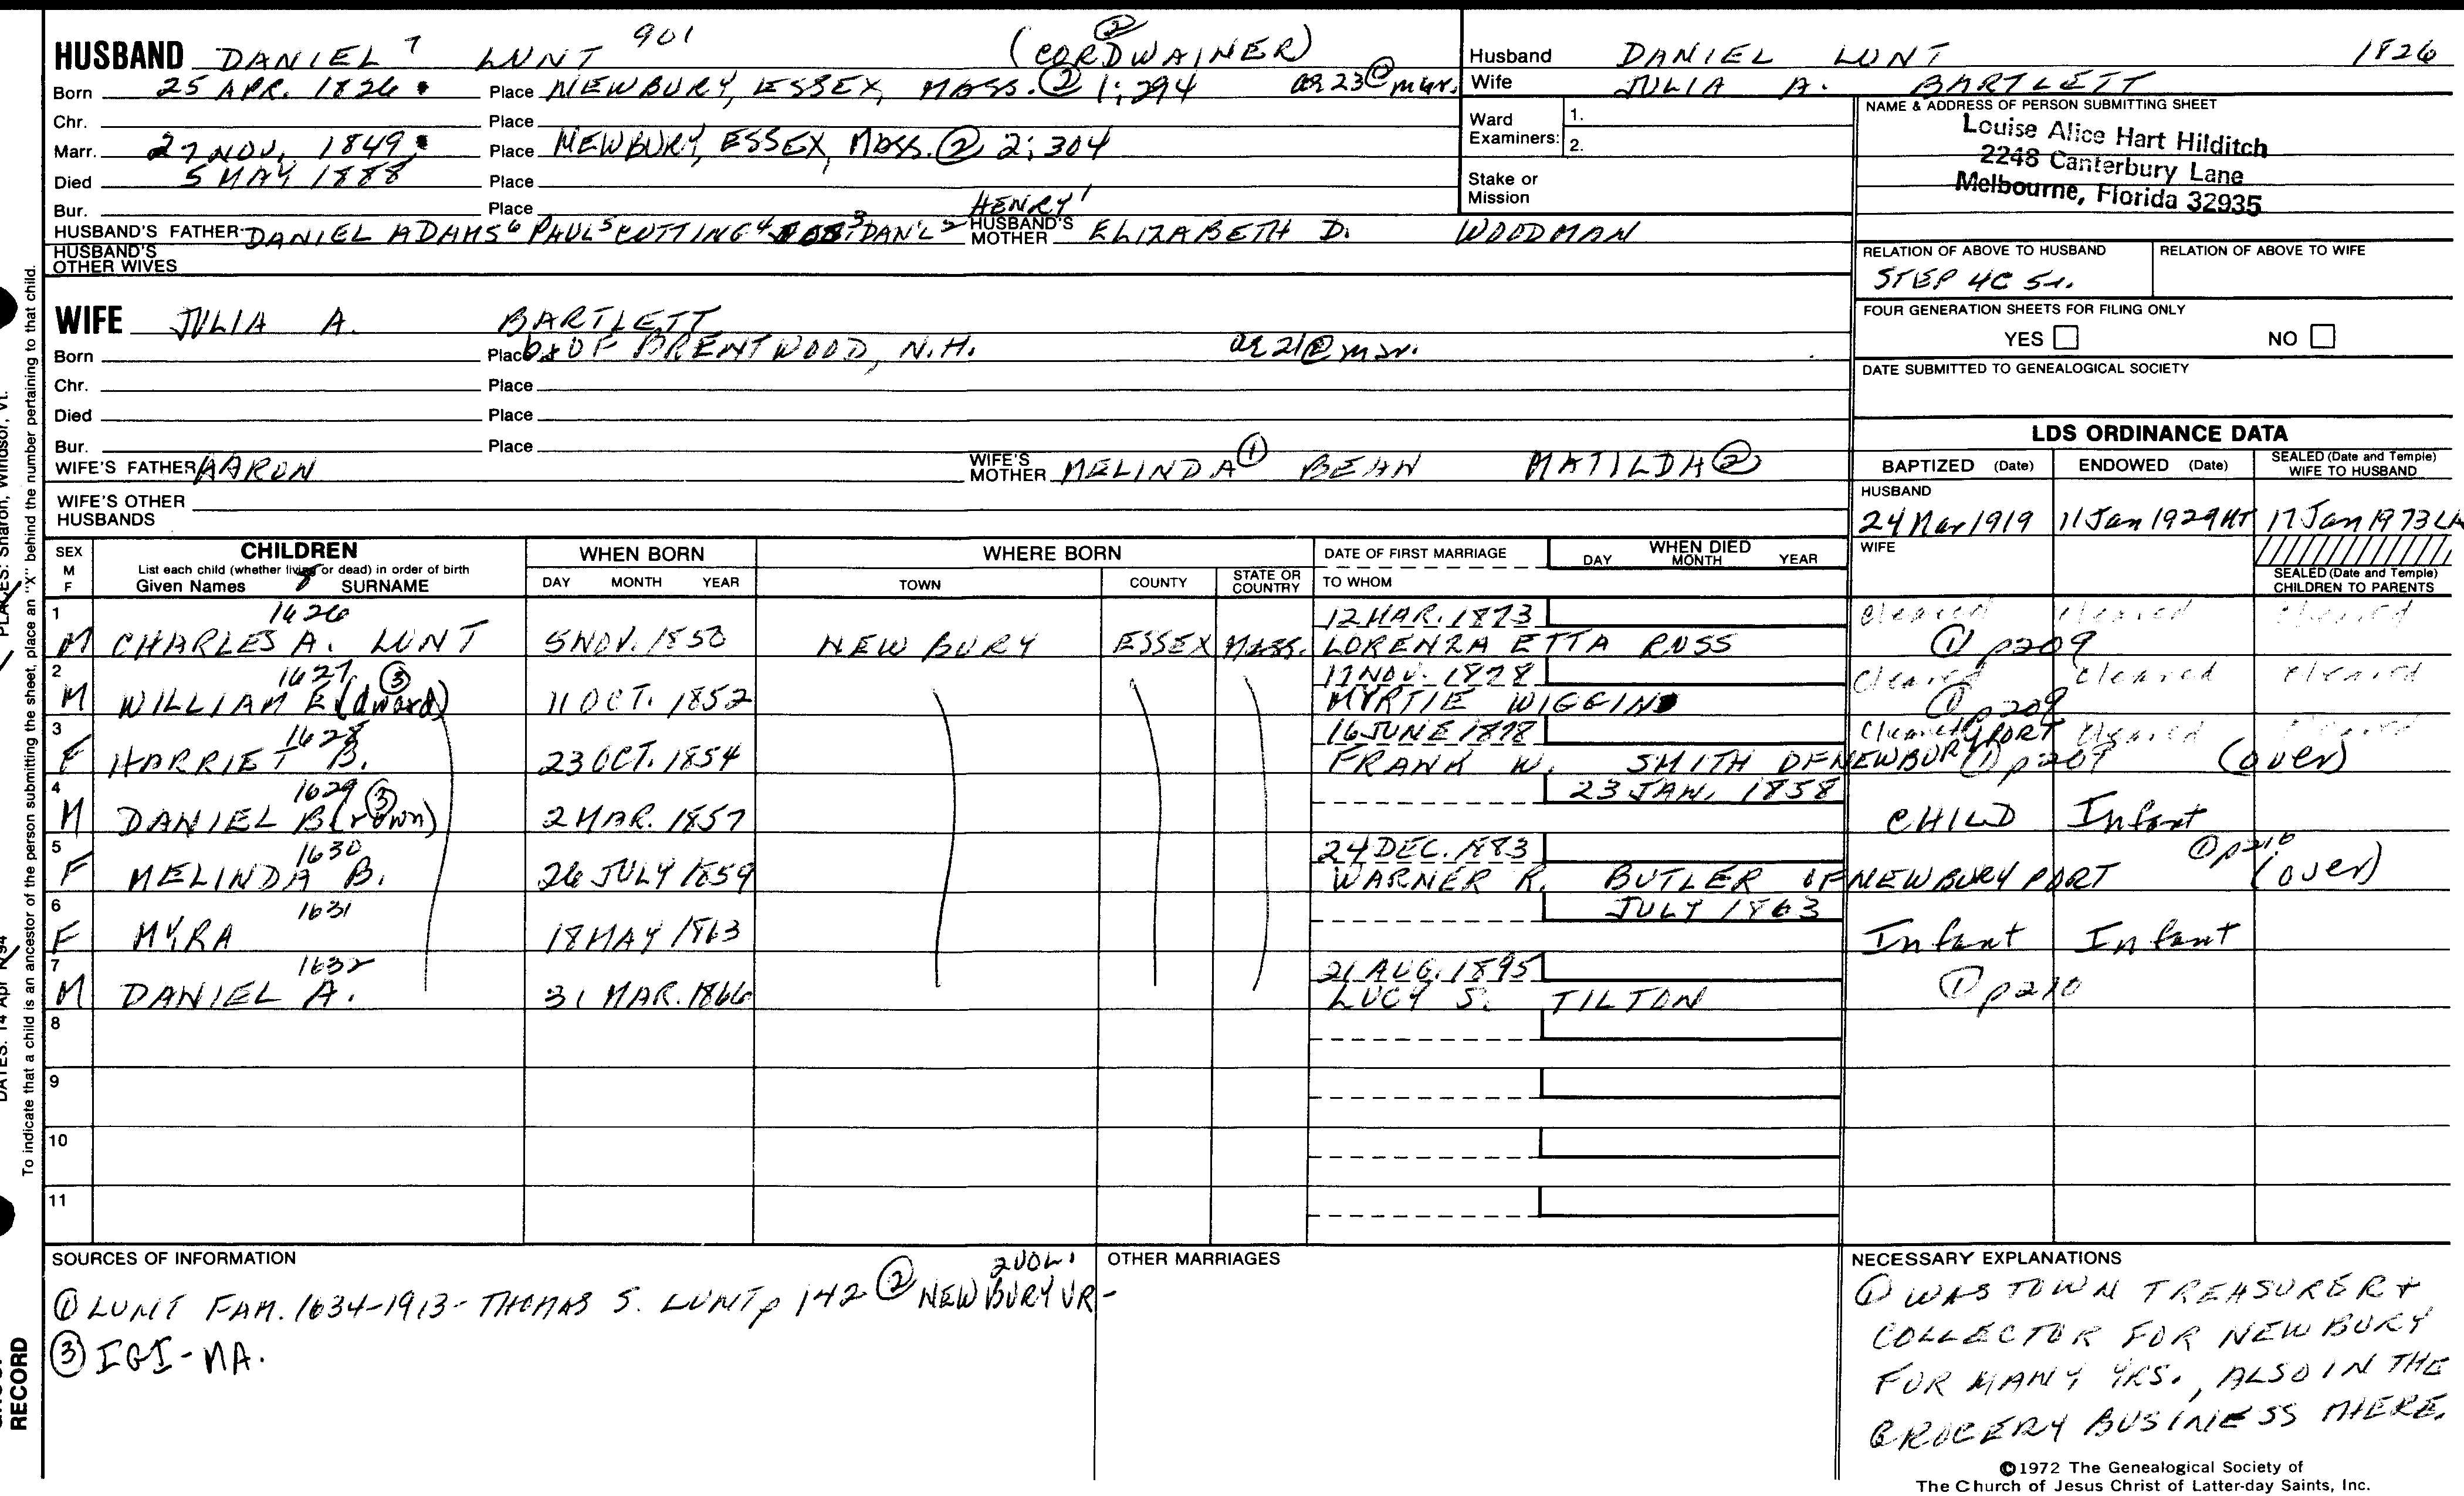 HUSBAND DANIEL 7 LUNT 901 (CORDWAINER) ②
Born 25 APR. 1826 Place NEWBURY, ESSEX, MASS. ② 1:294 ae 23 @ mar.
Chr. Place
Marr. 27 NOV. 1849 Place NEWBURY, ESSEX, MASS. ② 2:304
Died 5 MAY 1888 Place
Bur. Place
HUSBAND'S FATHER DANIEL ADAMS 6 PAUL 5 CUTTING 4 3 DAN'L 2 HENRY 1 HUSBAND'S MOTHER ELIZABETH D. WOODMAN
HUSBAND'S OTHER WIVES
Husband DANIEL LUNT 1826
Wife JULIA A. BARTLETT
Ward Examiners: 1.
2.
Stake or Mission
NAME & ADDRESS OF PERSON SUBMITTING SHEET
Louise Alice Hart Hilditch
2248 Canterbury Lane
Melbourne, Florida 32935
RELATION OF ABOVE TO HUSBAND RELATION OF ABOVE TO WIFE
STEP 4C 5r.
FOUR GENERATION SHEETS FOR FILING ONLY
YES NO
DATE SUBMITTED TO GENEALOGICAL SOCIETY
WIFE JULIA A. BARTLETT
Born Place OF BRENTWOOD, N.H. ae 21 @ mar.
Chr. Place
Died Place
Bur. Place
WIFE'S FATHER AARON WIFE'S MOTHER MELINDA ① BEAN MATILDA ②
WIFE'S OTHER HUSBANDS
LDS ORDINANCE DATA
BAPTIZED (Date) ENDOWED (Date) SEALED (Date and Temple) WIFE TO HUSBAND
HUSBAND
24 Mar 1919 11 Jan 1929 17 Jan 1973
WIFE
SEALED (Date and Temple) CHILDREN TO PARENTS
SEX M F CHILDREN List each child (whether living or dead) in order of birth Given Names SURNAME WHEN BORN DAY MONTH YEAR WHERE BORN TOWN COUNTY STATE OR COUNTRY DATE OF FIRST MARRIAGE TO WHOM WHEN DIED DAY MONTH YEAR
1 1626 12 MAR. 1873 Cleared Cleared Cleared
M CHARLES A. LUNT 5 NOV. 1850 NEWBURY ESSEX MASS. LORENZA ETTA ROSS ① p209
2 1627 ③ 17 NOV. 1878 Cleared Cleared Cleared
M WILLIAM E(dward) 11 OCT. 1852 MYRTIE WIGGIN ① p209
3 1628 16 JUNE 1878 Cleared PORT Cleared Cleared
F HARRIET B. 23 OCT. 1854 FRANK W. SMITH OF NEWBURY ① p209 (over)
4 1629 ③ 23 JAN. 1858
M DANIEL B(rown) 2 MAR. 1857 CHILD Infant
5 1630 24 DEC. 1883 ① p210
F MELINDA B. 26 JULY 1859 WARNER R. BUTLER OF NEWBURYPORT (over)
6 1631 JULY 1863
F MYRA 18 MAY 1863 Infant Infant
7 1632 21 AUG. 1895
M DANIEL A. 31 MAR. 1866 LUCY S. TILTON ① p210
8
9
10
11
SOURCES OF INFORMATION
① LUNT FAM. 1634-1913 - THOMAS S. LUNT p 142 ② NEWBURY VR - 2 VOL.
③ IGI - MA.
OTHER MARRIAGES
NECESSARY EXPLANATIONS
① WAS TOWN TREASURER +
COLLECTOR FOR NEWBURY
FOR MANY YRS., ALSO IN THE
GROCERY BUSINESS THERE.
©1972 The Genealogical Society of
The Church of Jesus Christ of Latter-day Saints, Inc.
To indicate that a child is an ancestor of the person submitting the sheet, place an "X" behind the number pertaining to that child.
PLACES: Sharon, Windsor, Vt.
DATES: 14 Apr
RECORD